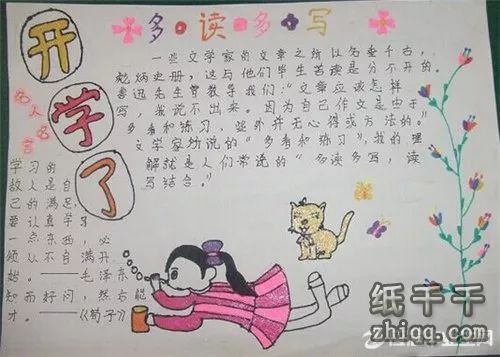 开学了
多·读·多·写
一些文学家的文章之所以名垂千古，
彪炳史册，这与他们毕生苦读是分不开的。
鲁迅先生曾教导我们：“文章应该怎样
写，我说不出来。因为自己作文是由于
多看和练习，此外并无心得或方法的。”
文学家幼说的“多看和练习”，我的理
解就是人们常说的“多读多写，读
写结合。”
名人名言
学习的
敌人是自
己的满足，
要认真学习
一点东西，必
须从不自满开
始。——毛泽东
知而好问，然后能
才。——《荀子》
纸千千
zhiqq.com